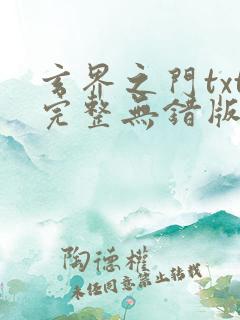 玄界之門txt
完整無錯版
陶德權
未经同意禁止转载